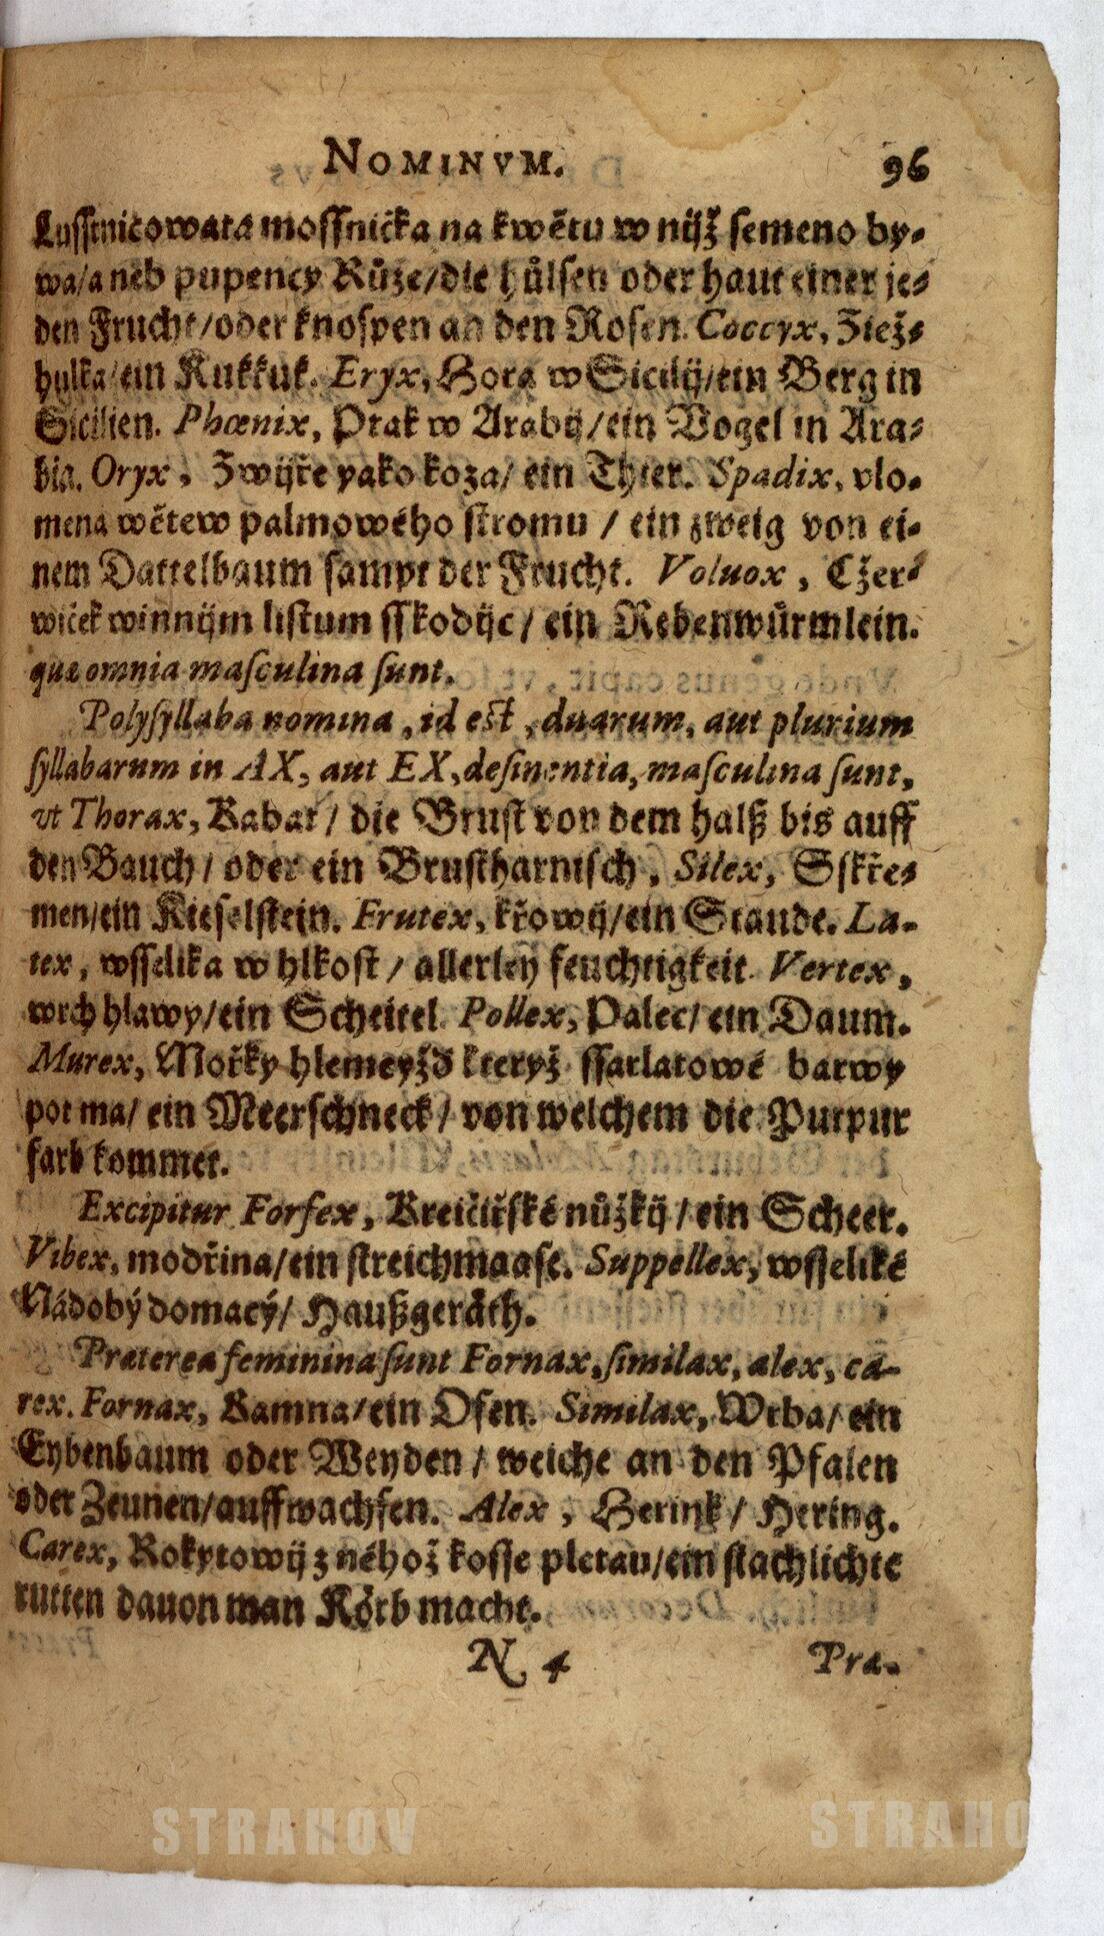 NOMINVM. 96
Lusstnicowata mossnička na kwětu w nijž semeno by-
wa/a neb pupency Růže/die hůlsen oder haut einer je-
den Frucht/oder knospen an den Rosen. Coccyx, Ziež-
hulka/ein Kukkuk. Eryx, Hora w Sicilij/ein Berg in
Sicilien. Phœnix, Ptak w Arabij/ein Vogel in Ara-
bia. Oryx, Zwijře yako koza/ ein Thier. Spadix, vlo-
mena wětew palmowého stromu / ein zweig von ei-
nem Dattelbaum sampt der Frucht. Voluox, Cžer-
wiček winnijm listum sskodijc/ ein Rebenwůrmlein.
quæ omnia maſculina ſunt.
Polyſyllaba nomina, id eſt, duarum, aut plurium
ſyllabarum in AX, aut EX, deſinentia, maſculina ſunt,
vt Thorax, Kabat/ die Brust von dem halß bis auff
den Bauch/ oder ein Brustharnisch, Silex, Sskře-
men/ein Kieselstein. Frutex, křowij/ein Staude. La-
tex, wsselika w hlkost/ allerley feuchtigkeit. Vertex,
wrch hlawy/ein Scheitel. Pollex, Palec/ ein Daum.
Murex, Mořky hlemeyžd kteryž ssarlatowé barwy
pot ma/ ein Meerschneck/ von welchem die Purpur
farb kommet.
Excipitur Forfex, Kreičiřské nůžkij/ein Scheer.
Vibex, modřina/ein streichmaase. Suppellex, wsseliké
Nádobý domacý/ Haußgeråth.
Præterea feminina ſunt Fornax, ſimilax, alex, ca-
rex. Fornax, Kamna/ein Ofen. Similax, Wrba/ ein
Eybenbaum oder Weyden / welche an den Pfalen
oder Zeunen/auffwachsen. Alex, Herink/ Hering.
Carex, Rokytowij z něhož kosse pletau/ein stachlichte
rutten dauon man Kőrb macht.
N 4 Præ-
STRAHOV STRAHO